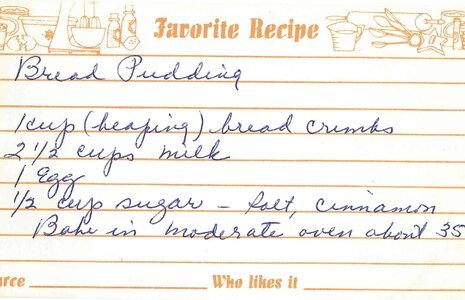 Favorite Recipe
Bread Pudding
1 cup (heaping) bread crumbs
2 1/2 cups milk
1 Egg
1/2 cup sugar - Salt, Cinnamon
Bake in moderate oven about 35
urce
Who likes it